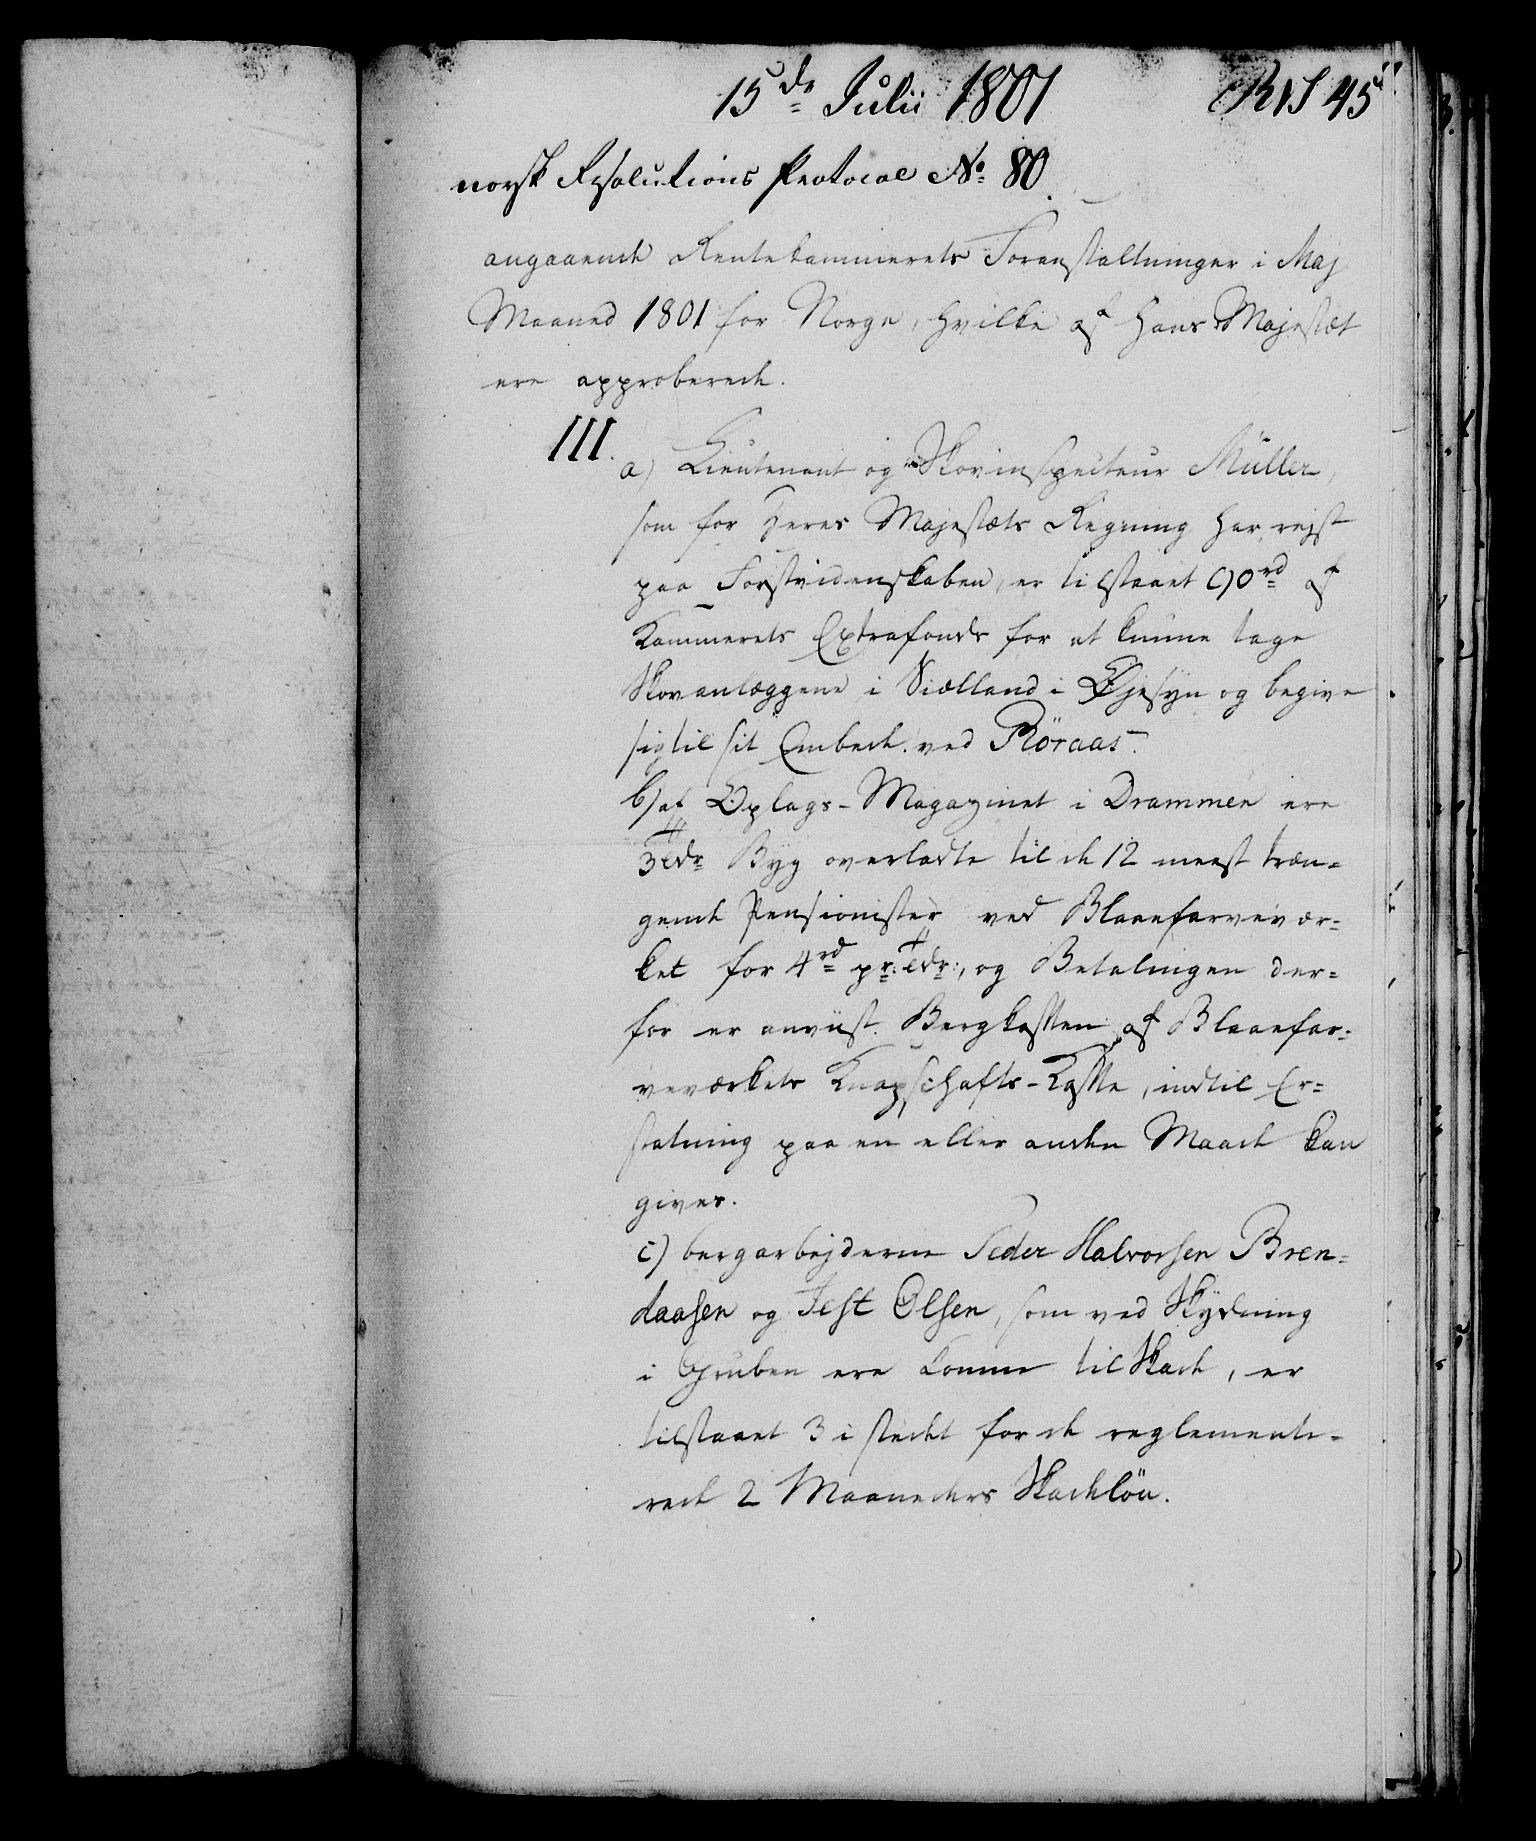 15de Julii 1801
norsk Resolutions Protocol No 80
angaaende Rentekammerets Foranstaltninger i Maj
Maaned 1801 for Norge, hvilke af Hans Majestæt
ere approberede.
III.
a) Lieutenant og Skovinspecteur Müller,
som for Deres Majestæts Regning har rejst
paa Forstvidenskaben, er tilstaaet 90rd af
Kammerets Extrafonds for at kunne tage
Skovanlæggene i Siælland i Øjesyn og begive
sig til sit Embede ved Röraas.
b) af Oplags-Magazinet i Drammen ere
3 Tdr Byg overladte til de 12 meest træn-
gende Pensionister ved Blaaefarvevær-
ket for 4rd pr: Tdr:, og Betalingen der-
for er anviist Bergkassen af Blaaefar-
veværkets Knapschafts-Kasse, indtil Er-
statning paa en eller anden Maade kan
gives.
c) bergarbejderne Peder Halvorsen Bren-
daasen og Jest Olsen, som ved Skydning
i Gruben ere komne til Skade, er
tilstaaet 3 i stedet for de reglemente-
rede 2 Maaneders Skadelön.